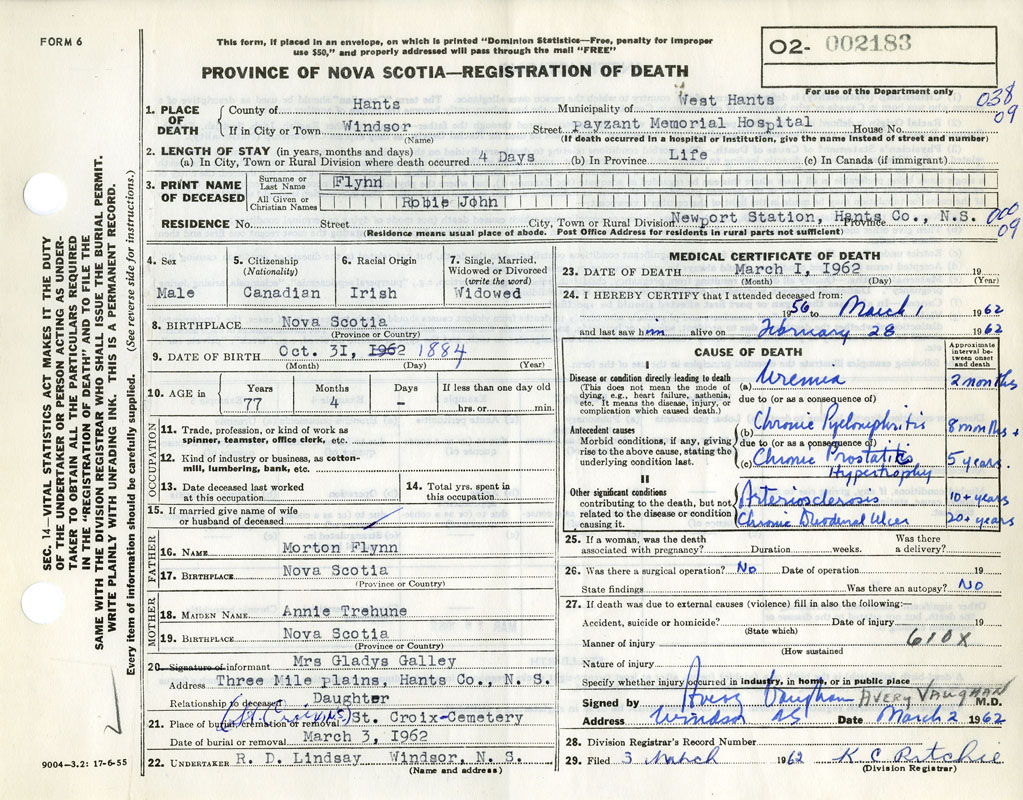 FORM 6
This form, if placed in an envelope, on which is printed "Dominion Statistics—Free, penalty for improper
use $50," and properly addressed will pass through the mail "FREE"
PROVINCE OF NOVA SCOTIA—REGISTRATION OF DEATH
O2- 002183
For use of the Department only
038
09
1. PLACE OF DEATH
County of Hants Municipality of West Hants
If in City or Town Windsor Street Payzant Memorial Hospital House No.
(Name) (If death occurred in a hospital or institution, give the name instead of street and number)
2. LENGTH OF STAY (in years, months and days)
(a) In City, Town or Rural Division where death occurred 4 Days (b) In Province Life (c) In Canada (if immigrant)
3. PRINT NAME OF DECEASED
Surname or Last Name Flynn
All Given or Christian Names Robie John
RESIDENCE No. Street City, Town or Rural Division Newport Station, Hants Co., N.S. Province
(Residence means usual place of abode. Post Office Address for residents in rural parts not sufficient)
000
09
4. Sex
Male
5. Citizenship
(Nationality)
Canadian
6. Racial Origin
Irish
7. Single, Married,
Widowed or Divorced
(write the word)
Widowed
8. BIRTHPLACE Nova Scotia
(Province or Country)
9. DATE OF BIRTH Oct. 3I, I962 1884
(Month) (Day) (Year)
10. AGE in
Years Months Days If less than one day old
77 4 - hrs. or min.
OCCUPATION
11. Trade, profession, or kind of work as
spinner, teamster, office clerk, etc.
12. Kind of industry or business, as cotton-
mill, lumbering, bank, etc.
13. Date deceased last worked
at this occupation
14. Total yrs. spent in
this occupation
15. If married give name of wife
or husband of deceased
FATHER
16. NAME Morton Flynn
17. BIRTHPLACE Nova Scotia
(Province or Country)
MOTHER
18. MAIDEN NAME Annie Trehune
19. BIRTHPLACE Nova Scotia
(Province or Country)
20. Signature of informant Mrs Gladys Galley
Address Three Mile plains, Hants Co., N. S.
Relationship to deceased Daughter
21. Place of burial, cremation or removal St. Croix-Cemetery
Date of burial or removal March 3, I962
22. UNDERTAKER R. D. Lindsay Windsor, N. S.
(Name and address)
MEDICAL CERTIFICATE OF DEATH
23. DATE OF DEATH March I, I962 19
(Month) (Day) (Year)
24. I HEREBY CERTIFY that I attended deceased from:
1956 to March 1 1962
and last saw him alive on February 28 1962
CAUSE OF DEATH
Approximate
interval be-
tween onset
and death
I
Disease or condition directly leading to death
(This does not mean the mode of
dying, e.g., heart failure, asthenia,
etc. It means the disease, injury, or
complication which caused death.)
(a) Uremia 2 months
due to (or as a consequence of)
Antecedent causes
Morbid conditions, if any, giving
rise to the above cause, stating the
underlying condition last.
(b) Chronic Pyelonphritis 8 months +
due to (or as a consequence of)
(c) Chronic Prostatitis 5 years.
Hypertrophy
II
Other significant conditions
contributing to the death, but not
related to the disease or condition
causing it.
Arteriosclerosis 10+ years
Chronic Duodenal Ulcer 20+ years
25. If a woman, was the death Was there
associated with pregnancy? Duration weeks. a delivery?
26. Was there a surgical operation? No Date of operation 19
State findings Was there an autopsy? No
27. If death was due to external causes (violence) fill in also the following:—
Accident, suicide or homicide? Date of injury 19
(State which)
Manner of injury 610X
(How sustained
Nature of injury
Specify whether injury occurred in industry, in home, or in public place
Signed by Avery Vaughan AVERY VAUGHAN M.D.
Address Windsor NS Date March 2 1962
28. Division Registrar's Record Number
29. Filed 3 March 1962 K C Ritchie
(Division Registrar)
SEC. 14—VITAL STATISTICS ACT MAKES IT THE DUTY
OF THE UNDERTAKER OR PERSON ACTING AS UNDER-
TAKER TO OBTAIN ALL THE PARTICULARS REQUIRED
IN THE "REGISTRATION OF DEATH" AND TO FILE THE
SAME WITH THE DIVISION REGISTRAR WHO SHALL ISSUE THE BURIAL PERMIT.
WRITE PLAINLY WITH UNFADING INK. THIS IS A PERMANENT RECORD.
Every item of information should be carefully supplied. (See reverse side for instructions.)
9004—3.2: 17-6-55